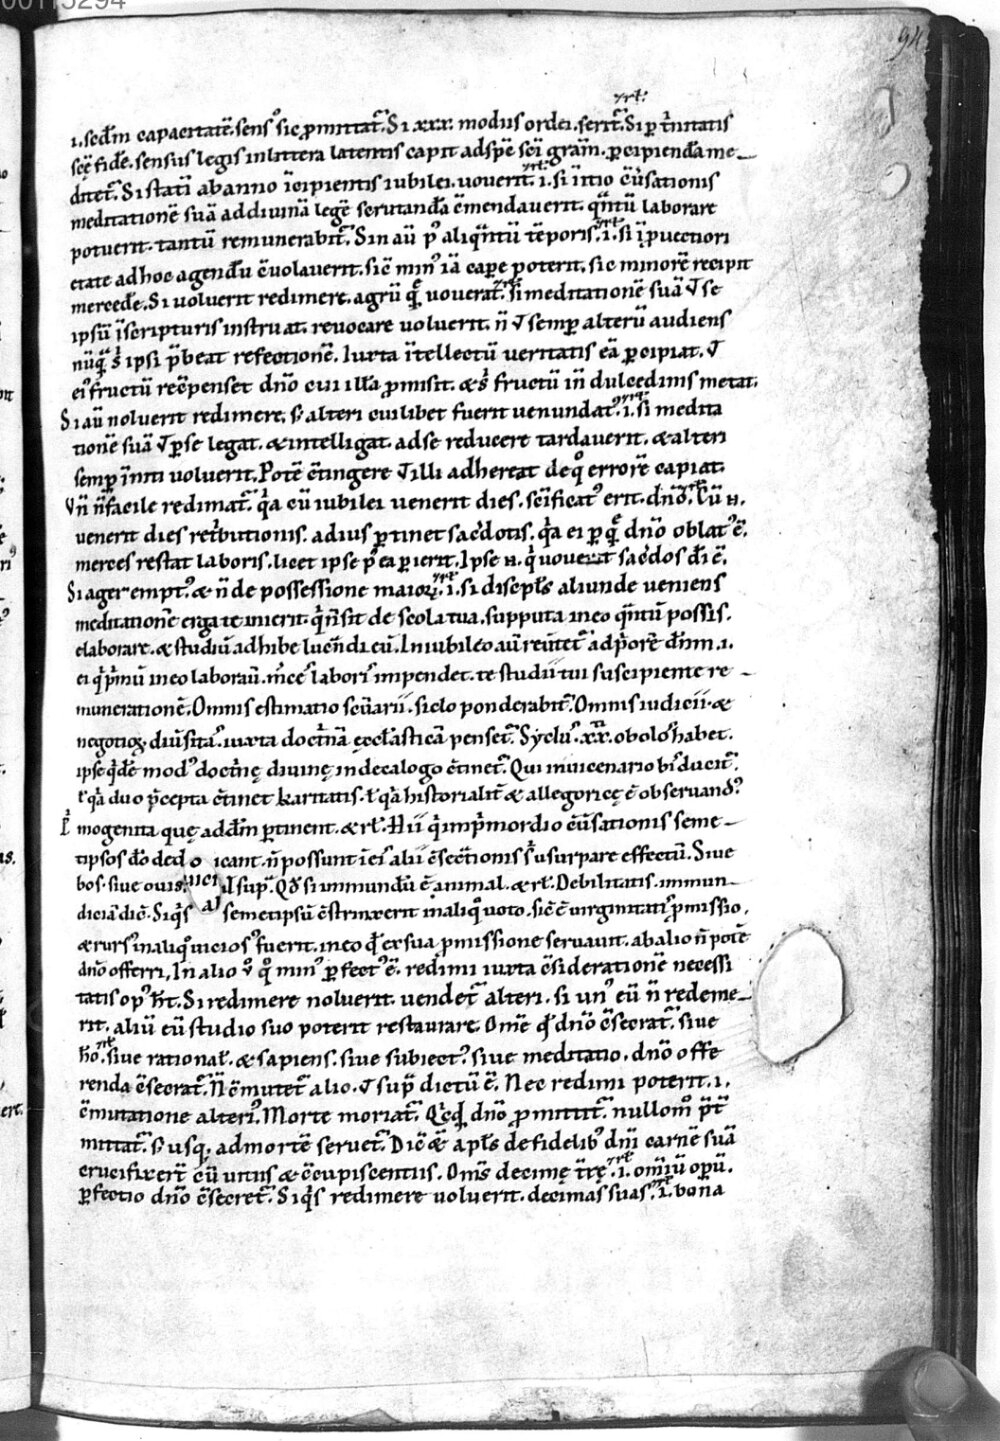 94
.i. scdm capacitatē. sensꝰ sic ꝓmittat᷑. Si xxx. modiis ordei. serit᷑. Si ꝑ t͛nitatis
scę fidē. sensus legis in littera latentis capit ad spē sci grām. ꝑcipiendā me-
ditet᷑. Si statī ab anno īcipientis iubilei. uouerit. .i. si īitio cūsationis
meditationē suā ad diuinā legē scrutandā ēmendauerit. qntū laborare
potuerit. tantū remunerabit᷑. Sin aū p̄ aliqntū tēporis. .i. si ī ꝓuectiori
etate ad hoc agendū ēuolauerit. sic̄ minꝰ iā capere poterit. sic minorē recipit
mercedē. Si uoluerit redimere. agrū q̄ uouerat. si meditationē suā ł se
ipsū ī scripturis instruat. reuocare uoluerit. n̄ ł semꝑ alterū audiens
nūq̄ sibi ipsi p̄beat refectionē. Iuxta ītellectū ueritatis eā ꝑcipiat. ł
eiꝰ fructū recēpenset dn̄o cui illā ꝓmisit. & s͛ fructū in̄ dulcedinis metat.
Si aū noluerit redimere. s; alteri cuilibet fuerit uenundatꝰ. .i. si medita
tionē suā ł ꝑ se legat. & intelligat. ad se reducere tardauerit. & alteri
semꝑ īniti uoluerit. Potē ētingere ł illi adhereat de q̊ errorē capiat.
Vn̄ n̄ facile redimat᷑. q̓a cū iubilei uenerit dies. scīficatꝰ erit. dn̄o. Cū .n.
uenerit dies ret͛butionis. ad ius ꝑtinet sac̄dotis. q̓a ei ꝑ q̄ dn̄o oblatꝰ ē.
merces restat laboris. licet ipse p̄ ea ꝑierit. Ipse .n. q̓ uouerat sac̄dos dī ē.
Si ager emptꝰ. & n̄ de possessione maioꝝ. .i. si discipl̄s aliunde ueniens
meditationē erga te inierit. q̓ n̄ sit de scola tua. supputa in eo qntū possis.
elaborare. & studiū adhibe lucn̄di eū. In iubileo aū reūtet᷑ ad p͛orē dn̄m. .i.
ei q̓ p͛mū in eo laborau̅. m̄cē laborꝰ impendet. te studii tui suscipiente re-
munerationē. Omnis estimatio sc̄uarii. siclo ponderabit᷑. Omnis iudicii. &
negotioꝝ. diūsitas. iuxta doct͛nā ęcclāsticā penset᷑. Syclus xx. obolos habet.
ipse q̓dē modꝰ doct͛nę diuinę in decalogo ētinet᷑. Qui in uicenario bis ducit᷑.
ł q̓a duo p̄cepta ētinet karitatis. ł q̓a historialit̄ & allegoricę ē obseruandꝰ
P͛mogenita quę ad dn̄m ꝑtinent. & rł. Hii q̓ in p͛mordio cūsationis seme-
tipsos dō dedicant. n̄ possunt īeis alii ēsec͛tionis s͛ usurpare effectū. Siue
bos. siue ouis. ł supᷓ. Qd si immundū ē animal. & rł. Debilitatis. immun-
diciā dic̄. Siq̓s semetipsū ēstrinxerit in aliq̊ uoto. sic̄ ē uirginitatis ꝓmissio.
& rursꝰ in aliq̊ uiciosꝰ fuerit. in eo q̄ ex sua ꝓmissione seruauit. ab alio n̄ potē
dn̄o offerri. In alio ꝟ q̊ minꝰ ꝑfectꝰ ē. redimi iuxta ēsiderationē necessi
tatis opꝰ h̄t. Si redimere noluerit. uendet᷑ alteri. si unꝰ eū n̄ redeme-
rit. aliū eū studio suo poterit restaurare. Om̄e q̄ dn̄o ēsecrat᷑. siue
hō. siue rational̄. & sapiens. siue subiectꝰ. siue meditatio. dn̄o offe
renda ēsecrat᷑. N̄ ēmutet᷑ alio. ł supᷓ dictū ē. Nec redimi poterit. .i.
ēmutatione alteriꝰ. Morte moriat᷑. Qcq̄d dn̄o ꝓmittit᷑. nullom̊ p̄t̄
mittat᷑. s; usq; ad mortē seruet᷑. Dic̄ & apl̄s de fidelibꝰ dn̄i carnē suā
crucifixer̄t cū uitiis & ēcupiscentiis. Om̄s decimę t͛rę. .i. om̄iū opꝝ.
ꝑfectio dn̄o ēsecret᷑. Siq̓s redimere uoluerit. decimas suas. .i. bona